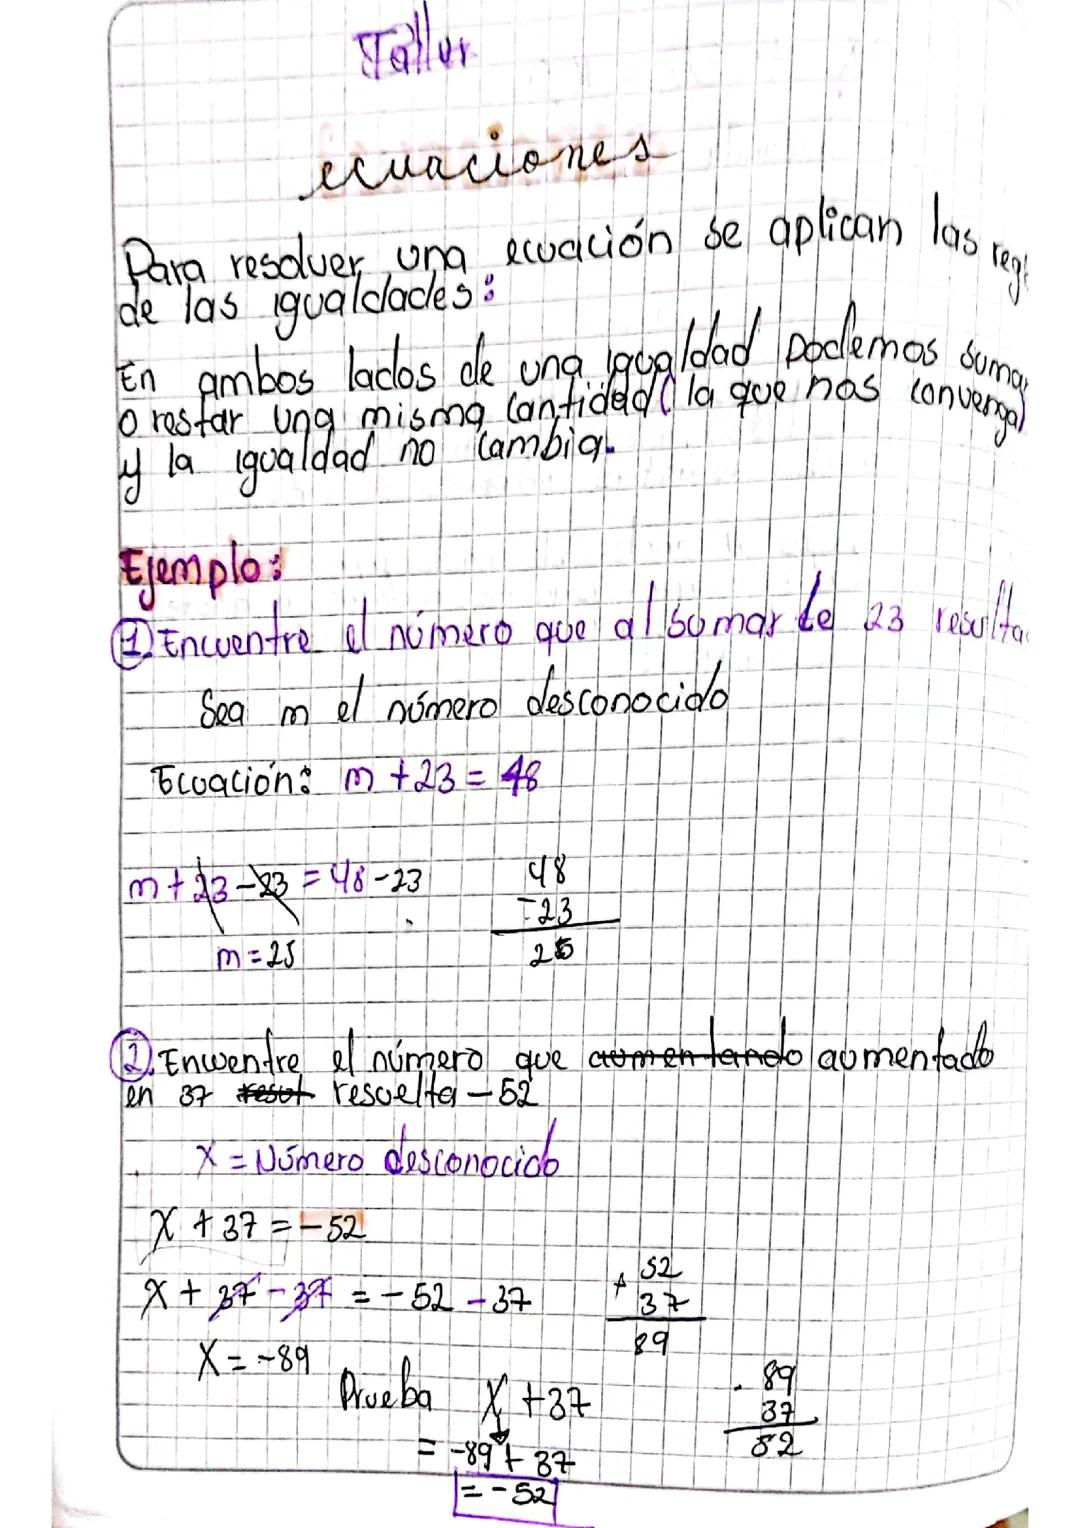 Taller
ecuaciones
Para resolver una ecuación se aplican las
de las igualdades:
En ambos lados de una igualdad podemos suma
o restar una misma cantidad (la que nos convenga)
y la igualdad no cambia.
Ejemplo:
1. Encuentre el número que al sumar le 23 resulta
Sea m el número desconocido
Ecuación: m + 23 = 48
m + 23 - 23 = 48 - 23
48
- 23
25
m = 25
2. Encuentre el número que aumentando aumentado
en 37 resul resuelta - 52
X = Número desconocido
X + 37 = - 52
X + 37 - 37 = - 52 - 37
52
+ 37
89
X = - 89
Prueba X + 37
- 89
37
52
= - 89 + 37
= - 52